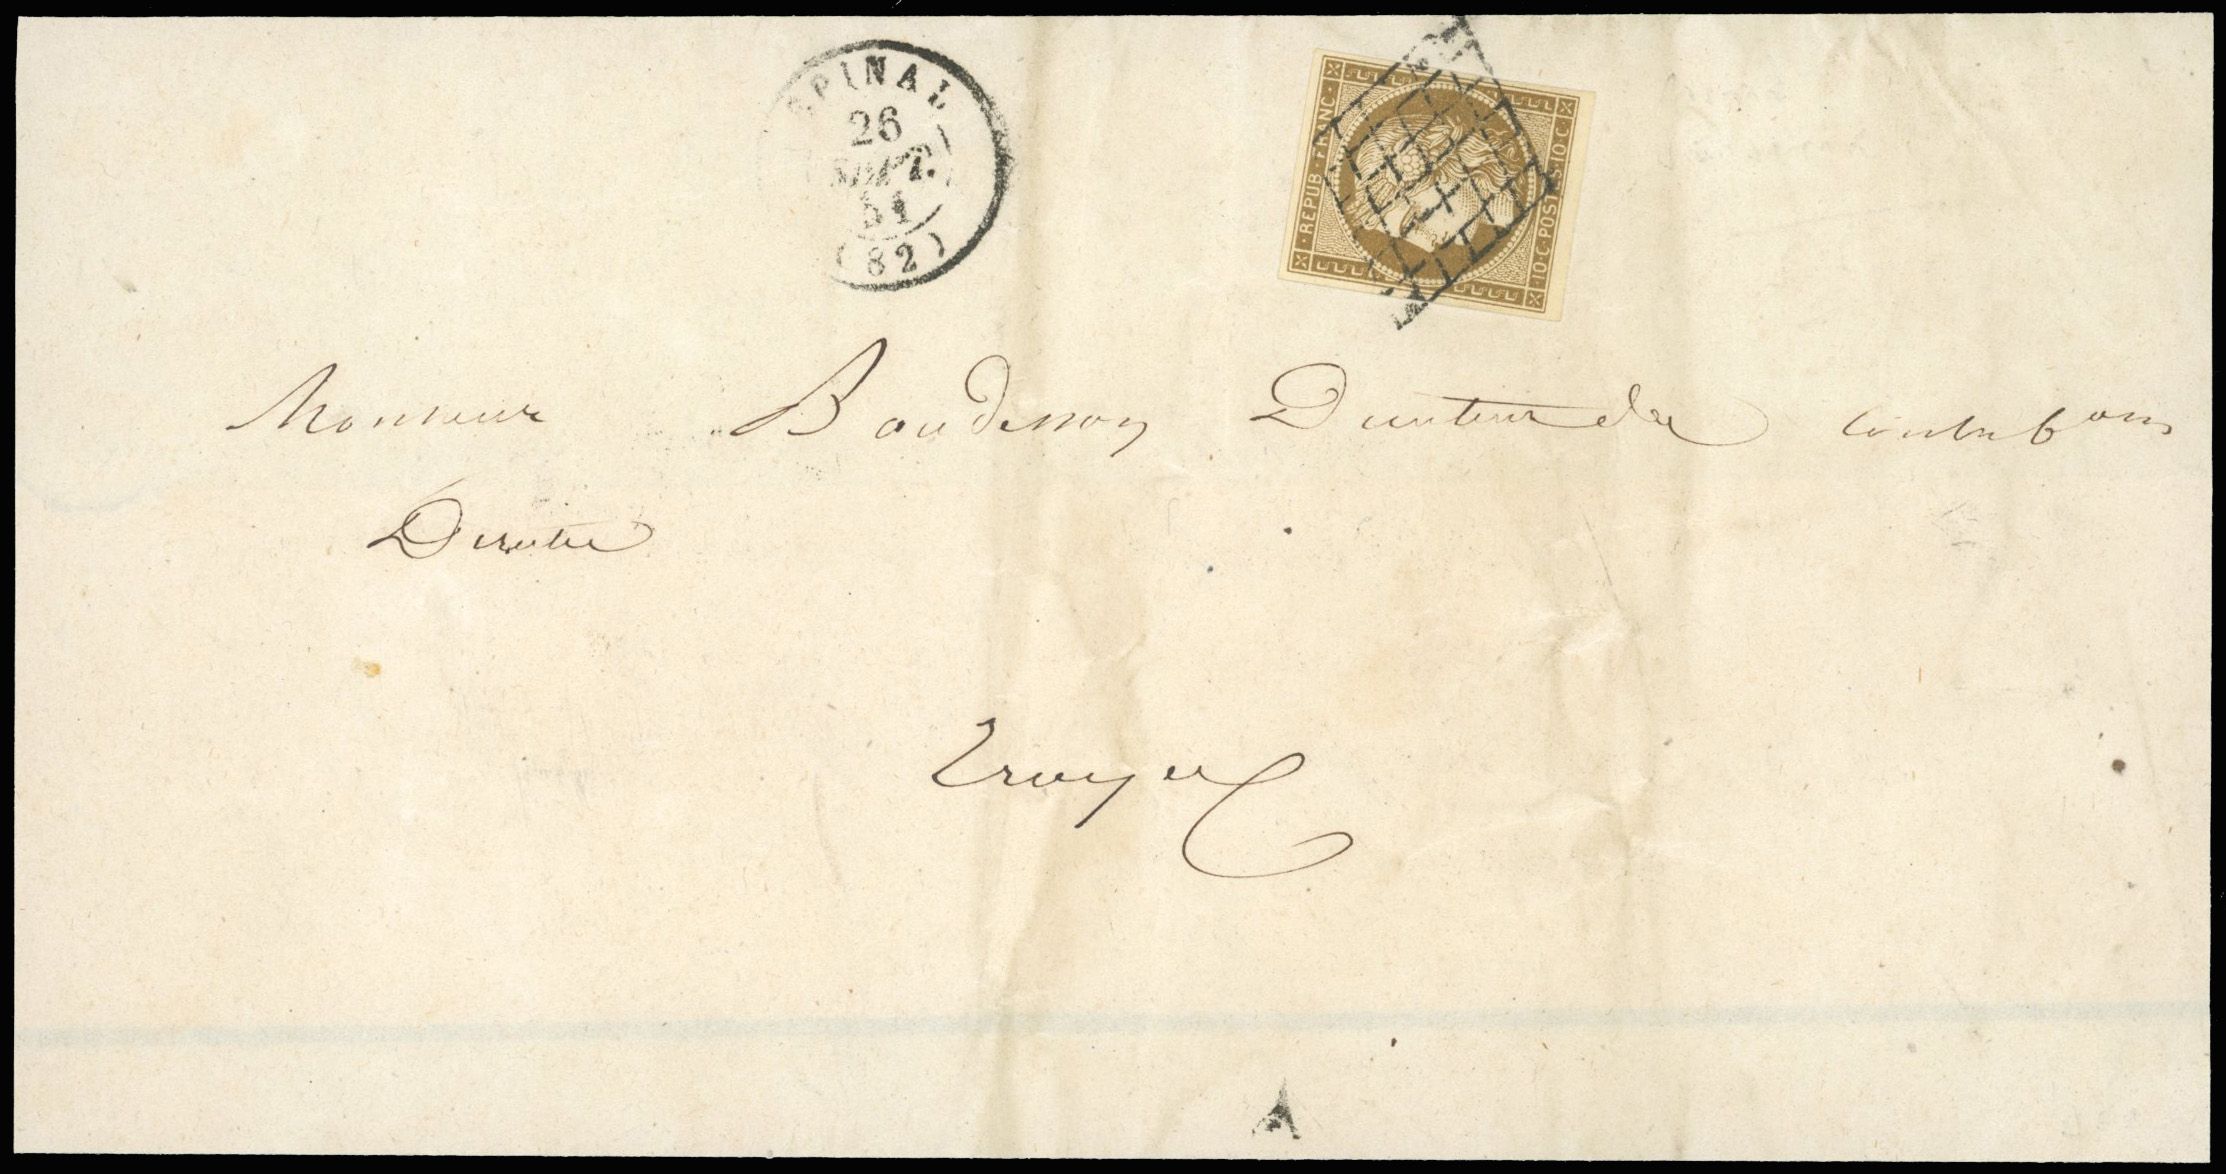 EPINAL
26
SEPT.
51
(82)
REPUB·FRANC·
·10·C·POSTES·10·C·
Monsieur Baudesson Directeur des Contrib^ons
Directes
Troyes